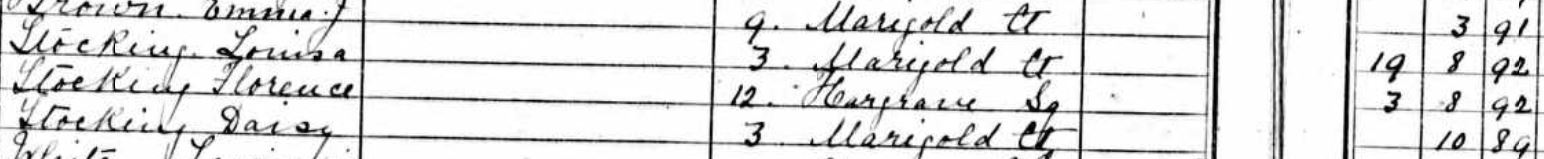 Brown Emma J 9. Marigold Ct 3 91
Stocking Louisa 3. Marigold Ct 19 8 92
Stocking Florence 12. Hargrave Sq 3 8 92
Stocking Daisy 3 Marigold Ct 10 89
White